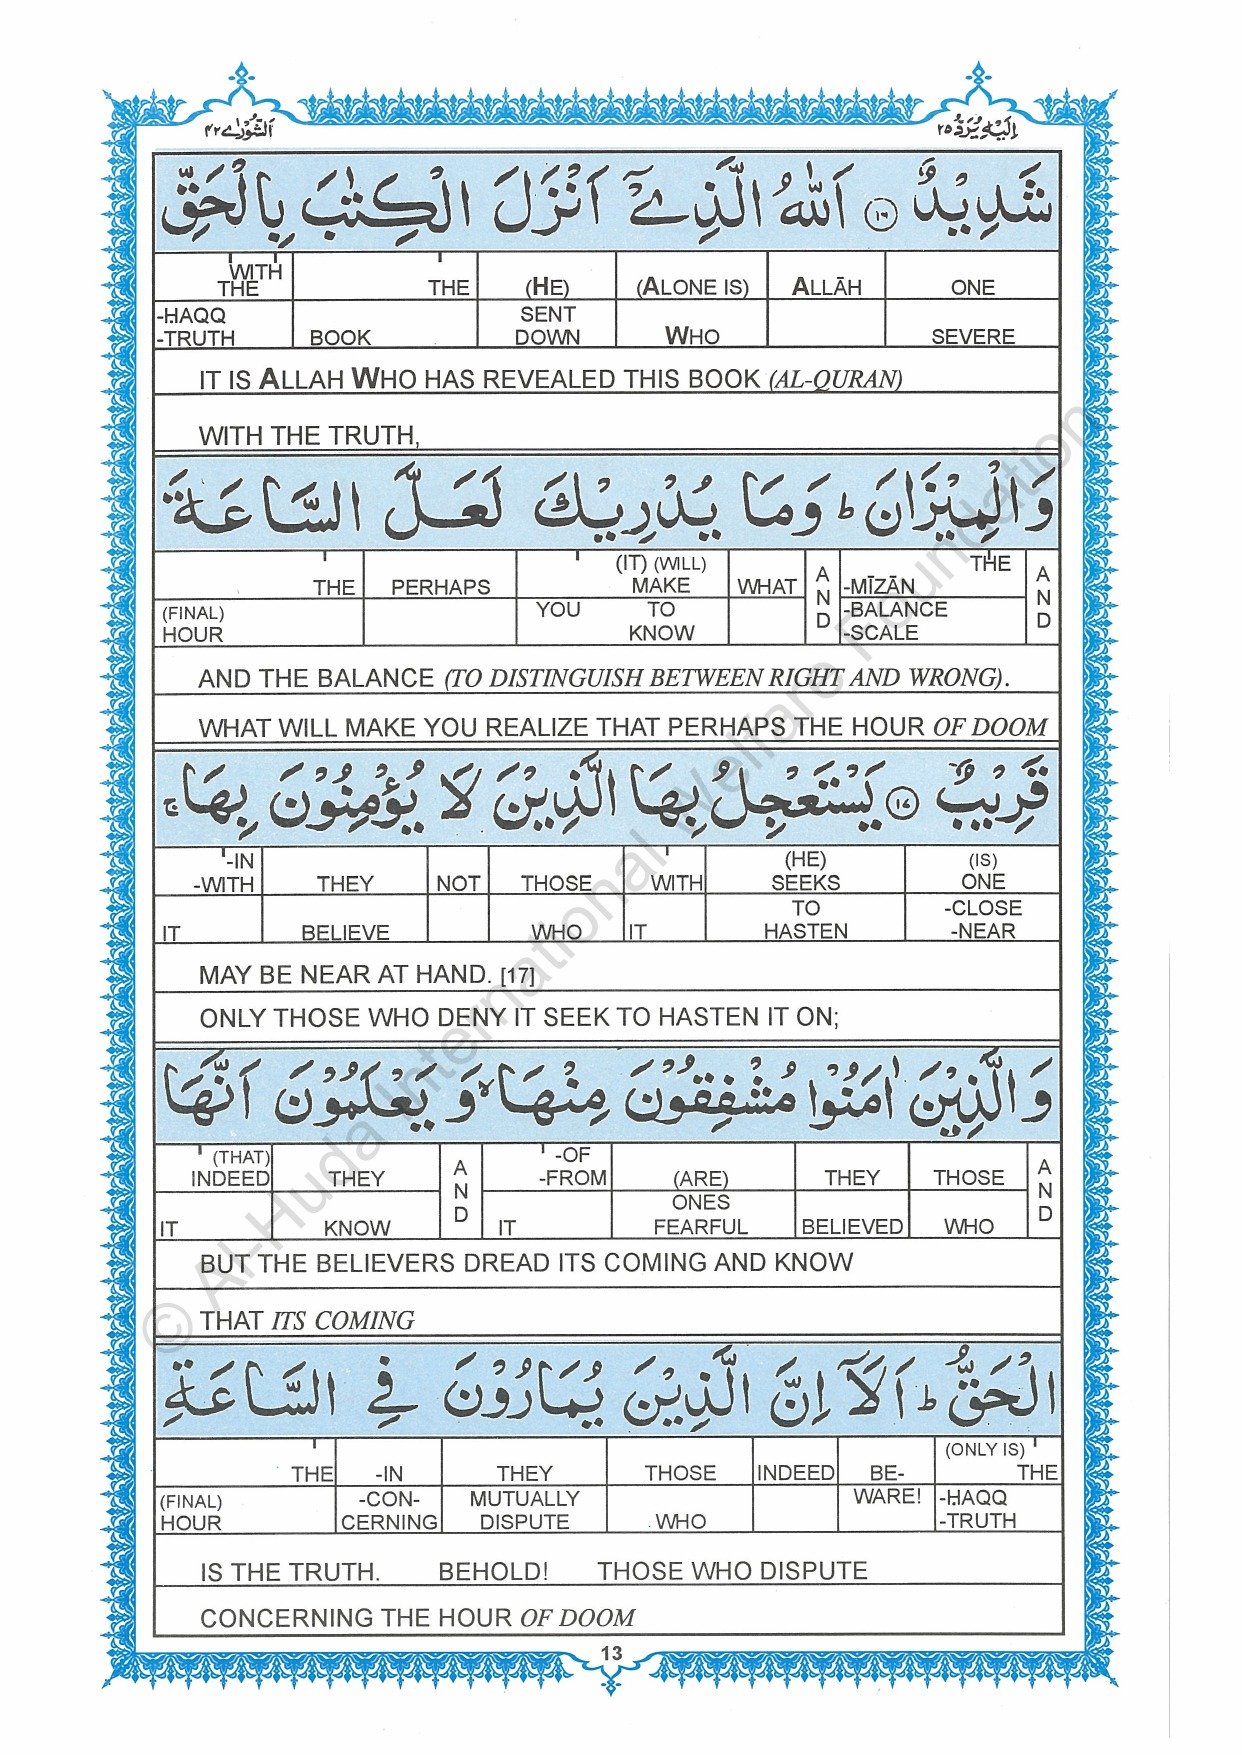 اِلَيْهِ يُرَدُّ ٢٥
اَلشُّوْرٰى ٤٢
شَدِيْدٌ ١٦ اَللّٰهُ الَّذِيْٓ اَنْزَلَ الْكِتٰبَ بِالْحَقِّ
WITH THE | THE | (HE) | (ALONE IS) | ALLĀH | ONE
-ḤAQQ -TRUTH | BOOK | SENT DOWN | WHO | SEVERE
IT IS ALLAH WHO HAS REVEALED THIS BOOK (AL-QURAN)
WITH THE TRUTH,
وَالْمِيْزَانَ ط وَمَا يُدْرِيْكَ لَعَلَّ السَّاعَةَ
THE | PERHAPS | (IT) (WILL) MAKE | WHAT | AND | THE -MĪZĀN | AND
(FINAL) HOUR | YOU TO KNOW | -BALANCE -SCALE
AND THE BALANCE (TO DISTINGUISH BETWEEN RIGHT AND WRONG).
WHAT WILL MAKE YOU REALIZE THAT PERHAPS THE HOUR OF DOOM
قَرِيْبٌ ١٧ يَسْتَعْجِلُ بِهَا الَّذِيْنَ لَا يُؤْمِنُوْنَ بِهَا ج
-IN -WITH | THEY | NOT | THOSE | WITH | (HE) SEEKS | (IS) ONE
IT | BELIEVE | WHO | IT | TO HASTEN | -CLOSE -NEAR
MAY BE NEAR AT HAND. [17]
ONLY THOSE WHO DENY IT SEEK TO HASTEN IT ON;
وَالَّذِيْنَ اٰمَنُوْا مُشْفِقُوْنَ مِنْهَا لا وَيَعْلَمُوْنَ اَنَّهَا
(THAT) INDEED | THEY | AND | -OF -FROM | (ARE) | THEY | THOSE | AND
IT | KNOW | IT | ONES FEARFUL | BELIEVED | WHO
BUT THE BELIEVERS DREAD ITS COMING AND KNOW
THAT ITS COMING
الْحَقُّ ط اَلَآ اِنَّ الَّذِيْنَ يُمَارُوْنَ فِي السَّاعَةِ
THE | -IN | THEY | THOSE | INDEED | BE- | (ONLY IS) THE
(FINAL) HOUR | -CON- CERNING | MUTUALLY DISPUTE | WHO | WARE! | -ḤAQQ -TRUTH
IS THE TRUTH. BEHOLD! THOSE WHO DISPUTE
CONCERNING THE HOUR OF DOOM
13
© Al-Huda International Welfare Foundation